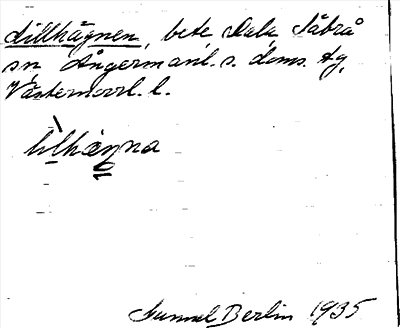 Lillhägnen, bete, Dala, Säbrå
sn, Ångermanl. s. doms. tg,
Västernorrl. l.
lılhäŋna
Gunnel Berlin 1935